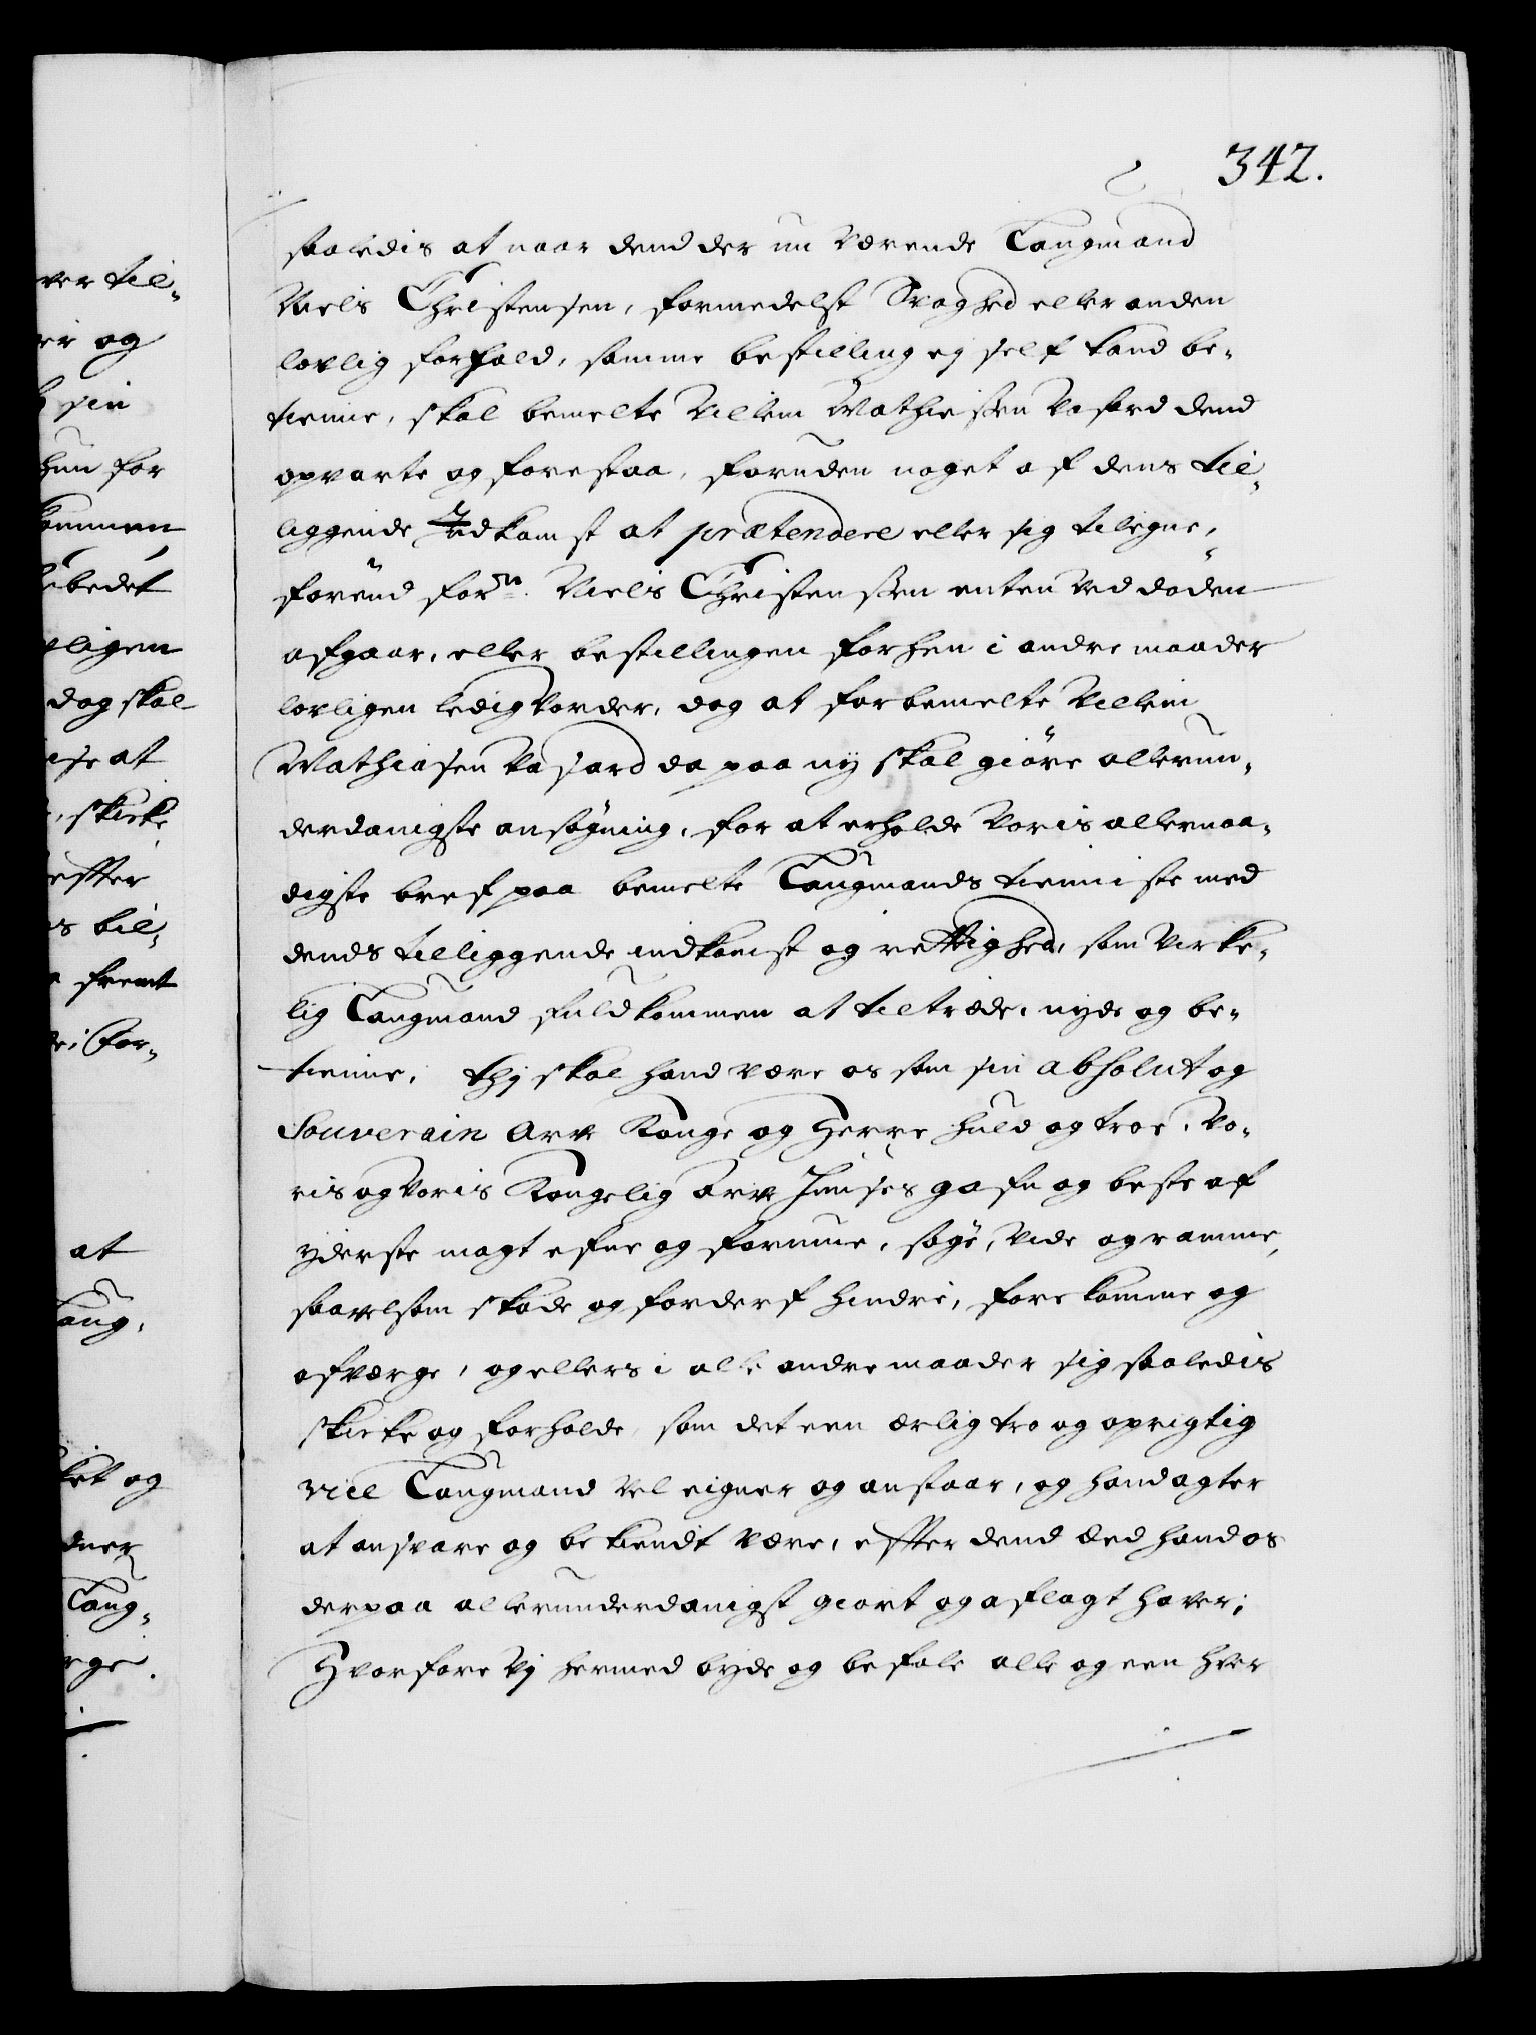 342.
saaledis at naar dend der nu værende Laugmand
Niels Christensen, formedelst Svaghed eller anden
lovlig forfald, samme bestilling ej self kand be¬
tienne, skal bemelte Villem Mathiesen Vasard dend
opvarte og forestaa, foruden noget af dens til¬
liggende Indkomst at prætendere eller sig tilegne,
førend forn. Niels Christenssen enten ved døden
afgaar, eller bestillingen forhen i andre maader
lovligen ledig vorder, dog at forbemelte Villem
Mathiasen Vasard da paa ny skal giøre allerun¬
derdanigste ansøgning, for at erholde Voris allernaa¬
digste bref paa bemelte Laugmands tienniste med
dends tilliggende indkomst og rettighed, som virke¬
lig Laugmand fuldkommen at tiltræde, nyde og be¬
tienne, thj skal hand være os som sin absolut og
Souverain Arve Konge og Herre huld og troe, Vo¬
ris og Voris Kongelig Arve Huuses gafn og beste af
yderste magt efne og formue, søge, vide og ramme,
saavelsom skade og forderf hindre, forekomme og
afværge, og ellers i alle andre maader sig saaledis
skicke og forholde, som det een ærlig tro og oprigtig
vice Laugmand vel eigner og anstaar, og hand agter
at ansvare og bekiendt være, effter dend Æed hand os
derpaa allerunderdanigst giort og aflagt haver;
Hvorfore Vj hermed byde og befale alle og een hver
ver til¬
er og
sin
hun for
kommen
ligen
dog skal
at
skicke
effter
til¬
fremt
for¬
at
Laug¬
og
Laug¬